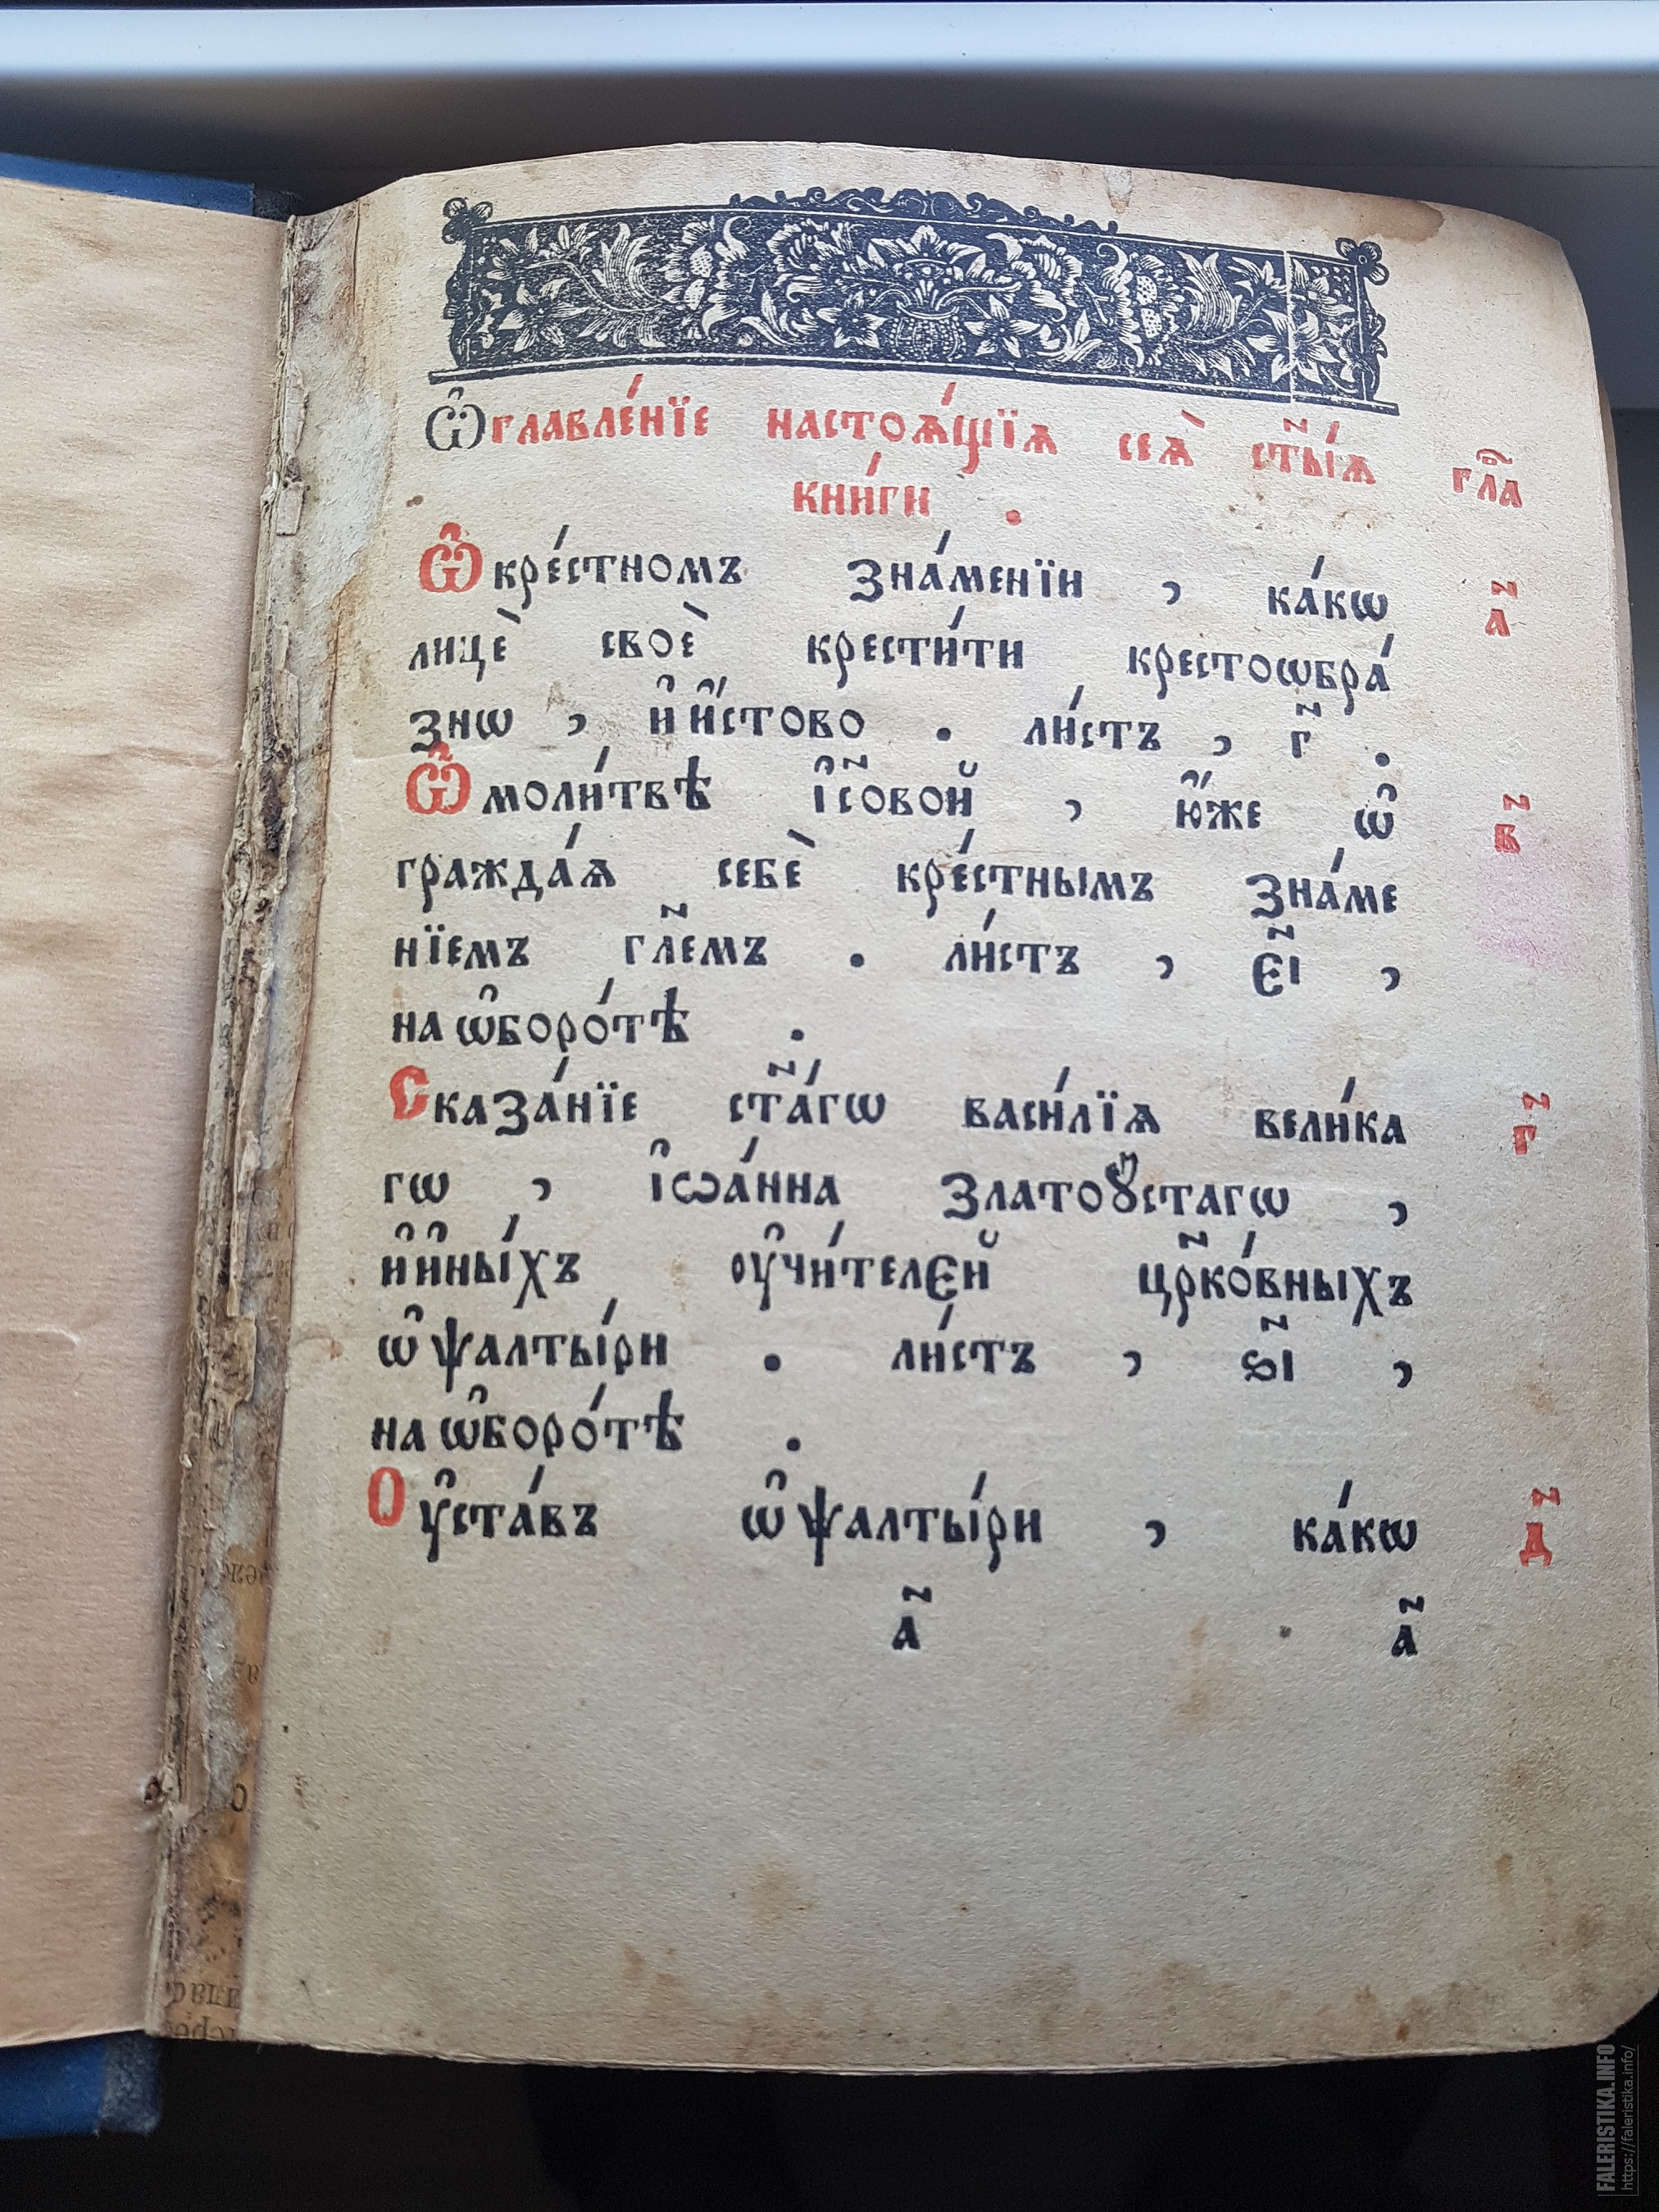 Ѡ҆главле́нїе настоѧ́щїѧ сеѧ̀ ст҃ы́ѧ гла̑
кни́ги .
Ѡ҆ кре́стномъ зна́менїи , ка́кѡ а҃
лицѐ своѐ крести́ти крестоѡбра́
знѡ , и҆ и҆́стово . ли́стъ , г҃ .
Ѡ҆ моли́твѣ і҆с҃овой , ю҆́же ѡ҆ в҃
гражда́ѧ себѐ кре́стнымъ зна́ме
нїемъ гл҃емъ . ли́стъ , є҃і ,
на ѡ҆боро́тѣ .
Сказа́нїе ст҃а́гѡ васи́лїѧ вели́ка г҃
гѡ , і҆ѡа́нна златоꙋ́стагѡ ,
и҆ и҆ны́хъ оу҆чи́телєй цр҃ко́вныхъ
ѡ҆ ѱалты́ри . ли́стъ , ѕ҃і ,
на ѡ҆боро́тѣ .
Оу҆ста́въ ѡ҆ ѱалты́ри , ка́кѡ д҃
а҃ а҃
FALERISTIKA.INFO
https://faleristika.info/